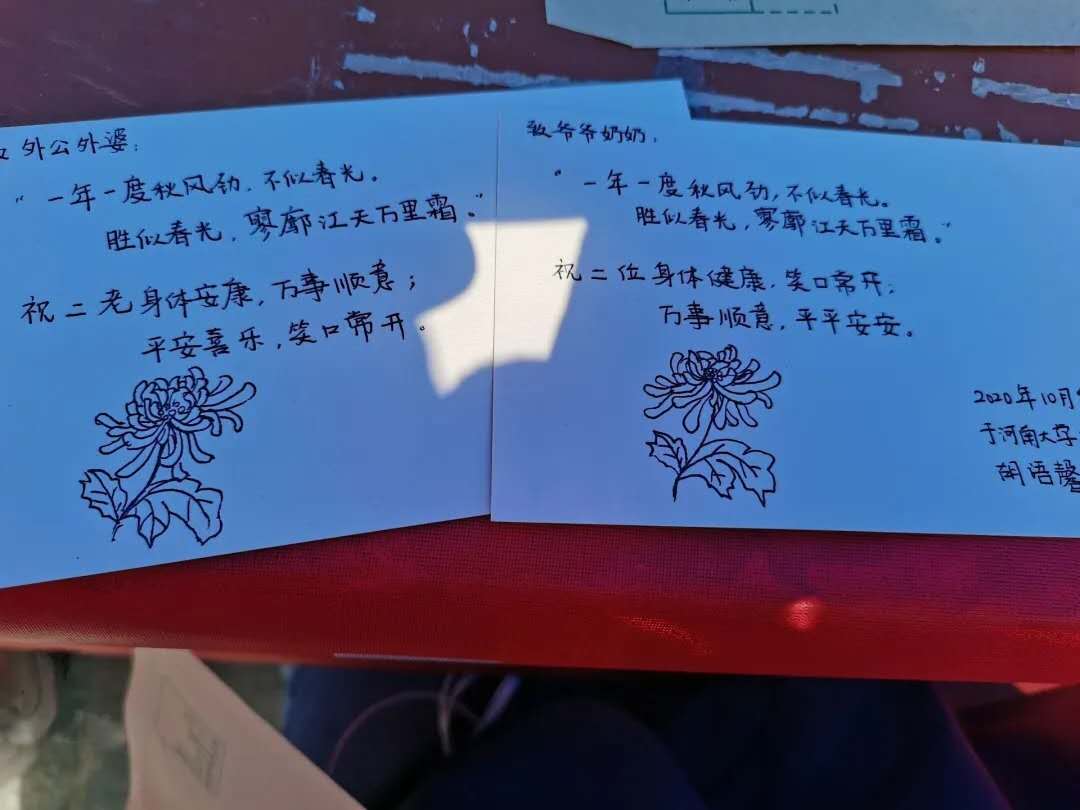 外公外婆：
“一年一度秋风劲，不似春光。
胜似春光，寥廓江天万里霜。”
祝二老身体安康，万事顺意；
平安喜乐，笑口常开。
致爷爷奶奶：
“一年一度秋风劲，不似春光。
胜似春光，寥廓江天万里霜。”
祝二位身体健康，笑口常开；
万事顺意，平平安安。
2020年10月
于河南大学
胡语馨